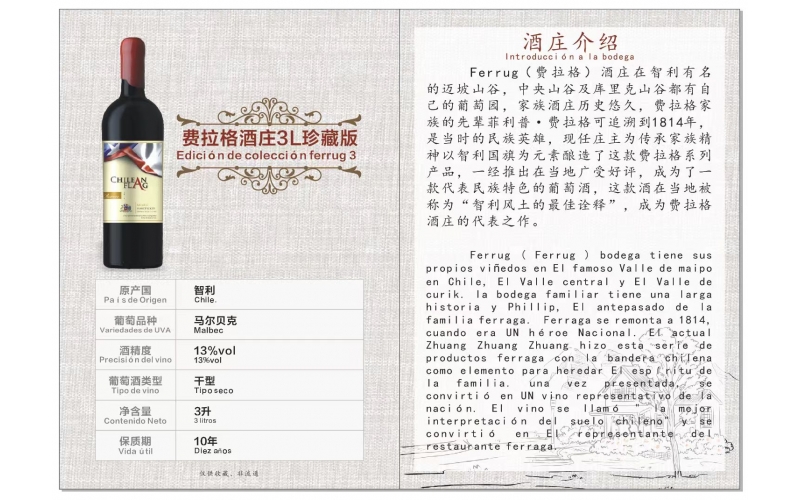 费拉格酒庄3L珍藏版
Edición de colección ferrug 3
CHILEAN
FLAG
原产国
País de Origen
智利
Chile.
葡萄品种
Variedades de UVA
马尔贝克
Malbec
酒精度
Precisión del vino
13%vol
13%vol
葡萄酒类型
Tipo de vino
干型
Tipo seco
净含量
Contenido Neto
3升
3 litros
保质期
Vida útil
10年
Diez años
仅供收藏，非流通
酒庄介绍
Introducción a la bodega
Ferrug（费拉格）酒庄在智利有名
的迈坡山谷，中央山谷及库里克山谷都有自
己的葡萄园，家族酒庄历史悠久，费拉格家
族的先辈菲利普·费拉格可追溯到1814年，
是当时的民族英雄，现任庄主为传承家族精
神以智利国旗为元素酿造了这款费拉格系列
产品，一经推出在当地广受好评，成为了一
款代表民族特色的葡萄酒，这款酒在当地被
称为“智利风土的最佳诠释”，成为费拉格
酒庄的代表之作。
Ferrug ( Ferrug ) bodega tiene sus
propios viñedos en El famoso Valle de maipo
en Chile, El Valle central y El Valle de
curik. la bodega familiar tiene una larga
historia y Phillip, El antepasado de la
familia ferraga. Ferraga se remonta a 1814,
cuando era UN héroe Nacional. El actual
Zhuang Zhuang Zhuang hizo esta serie de
productos ferraga con la bandera chilena
como elemento para heredar El espíritu de
la familia. una vez presentada, se
convirtió en UN vino representativo de la
nación. El vino se llamó "la mejor
interpretación del suelo chileno" y se
convirtió en El representante del
restaurante ferraga.